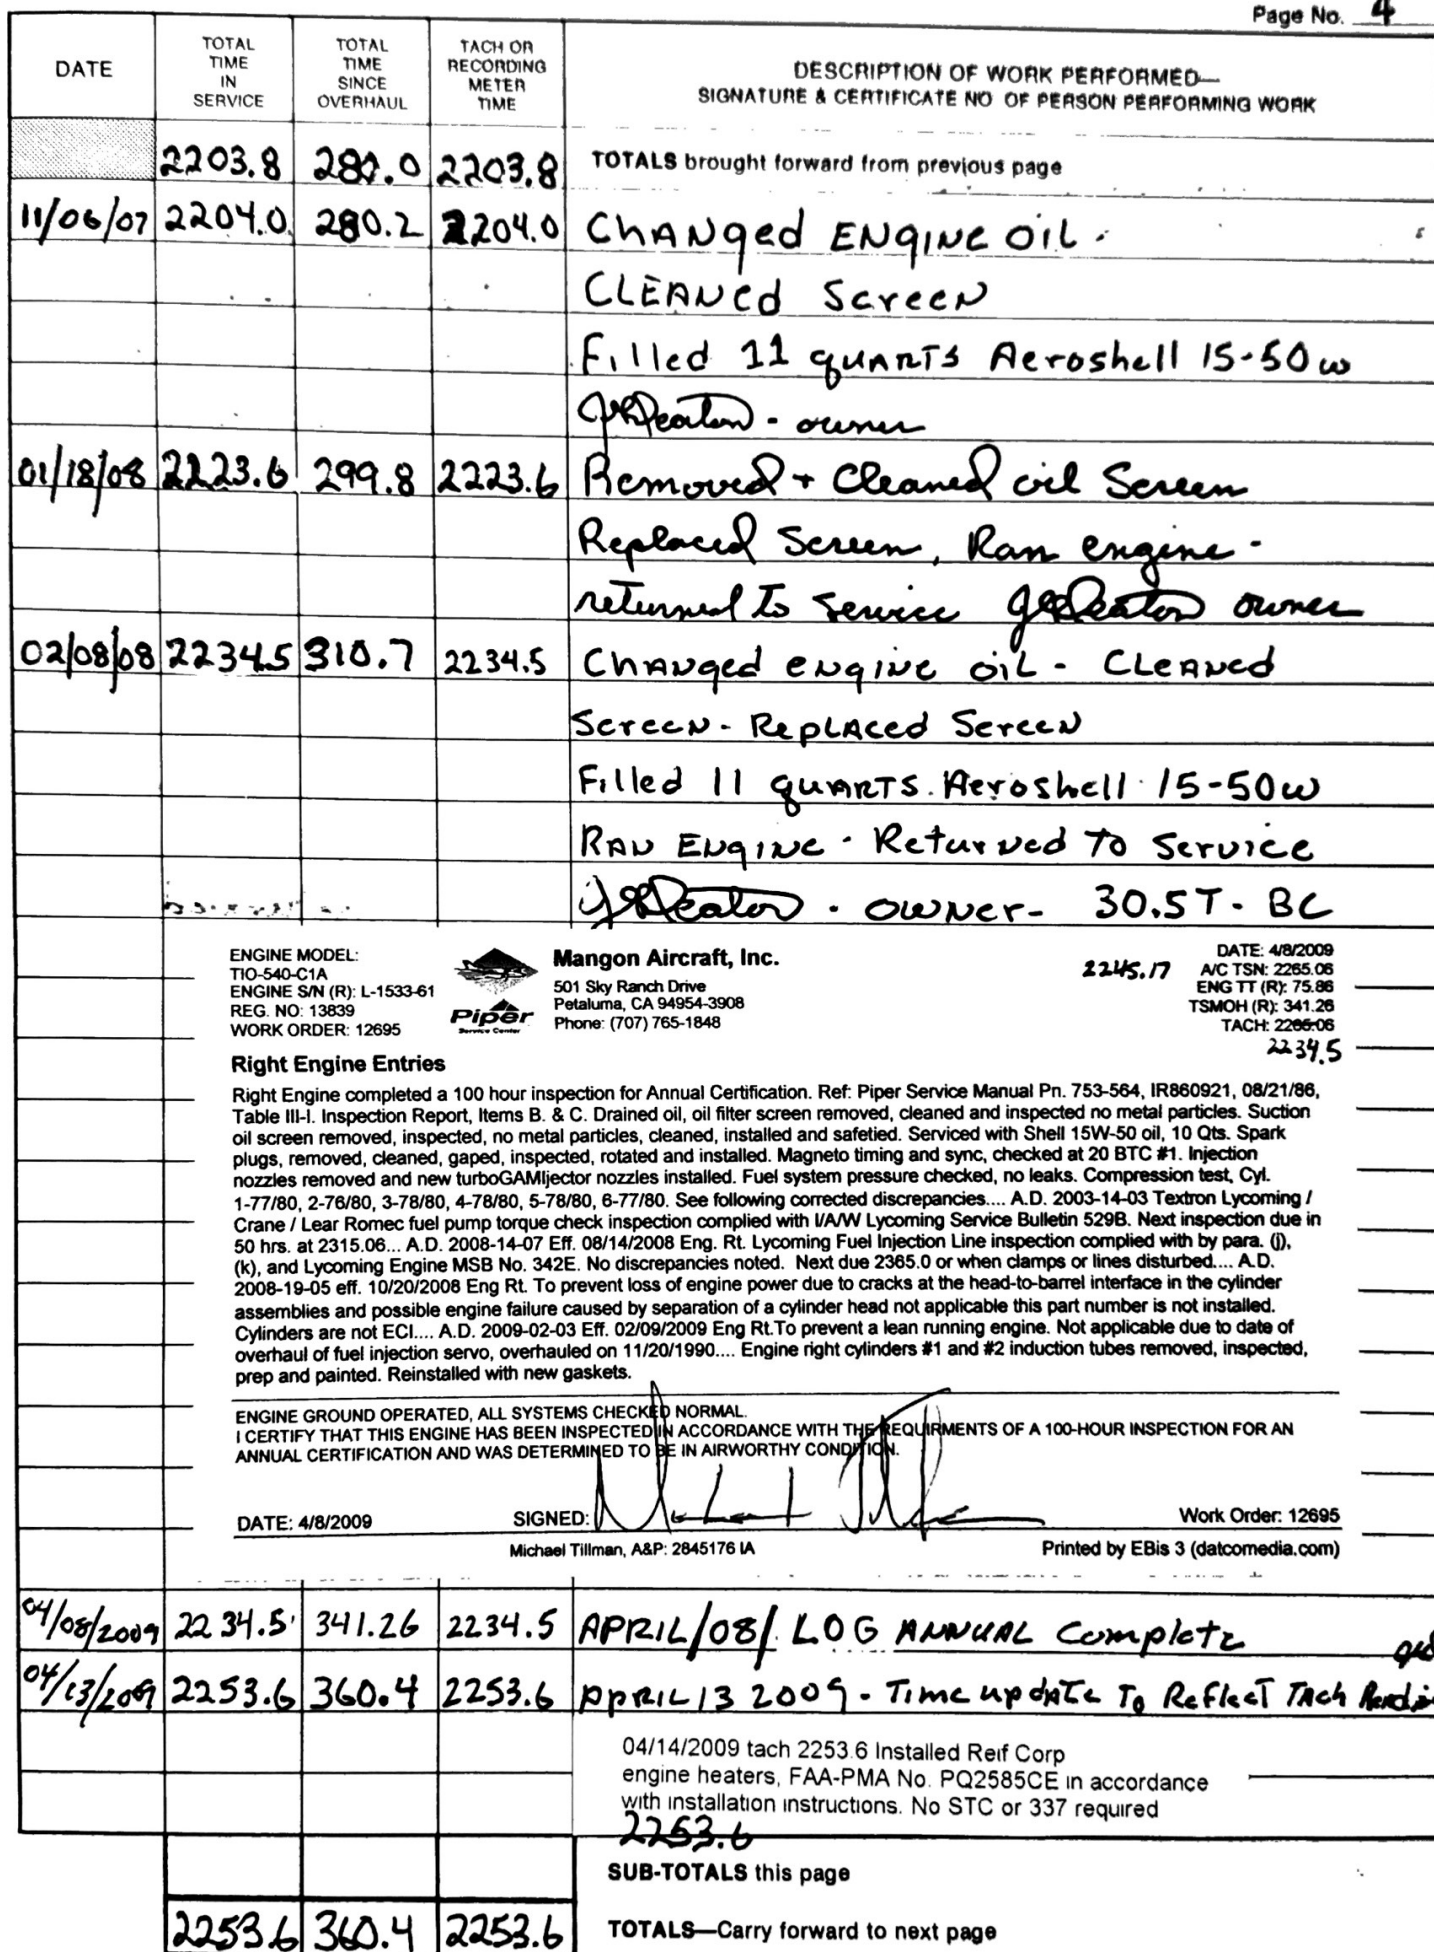 Page No. 4
DATE
TOTAL TIME IN SERVICE
TOTAL TIME SINCE OVERHAUL
TACH OR RECORDING METER TIME
DESCRIPTION OF WORK PERFORMED—
SIGNATURE & CERTIFICATE NO OF PERSON PERFORMING WORK
2203.8 280.0 2203.8 TOTALS brought forward from previous page
11/06/07 2204.0 280.2 2204.0 CHANged ENgINE OIL.
CLEANed Screen
Filled 11 quARTS Aeroshell 15-50w
JRDeaton - owner
01/18/08 2223.6 299.8 2223.6 Removed + Cleaned oil Screen
Replaced Screen, Ran engine -
returned to Service JRDeaton owner
02/08/08 2234.5 310.7 2234.5 CHANged eNgINE OIL - CLEANed
Screen - RepLAced Screen
Filled 11 quARTS. Aeroshell 15-50w
RAN ENgINE - Returned TO Service
JRDeaton - OWNER - 30.5T - BC
ENGINE MODEL:
TIO-540-C1A
ENGINE S/N (R): L-1533-61
REG. NO: 13839
WORK ORDER: 12695
Piper
Service Center
Mangon Aircraft, Inc.
501 Sky Ranch Drive
Petaluma, CA 94954-3908
Phone: (707) 765-1848
2245.17
DATE: 4/8/2009
A/C TSN: 2265.06
ENG TT (R): 75.86
TSMOH (R): 341.26
TACH: 2265.06
2234.5
Right Engine Entries
Right Engine completed a 100 hour inspection for Annual Certification. Ref: Piper Service Manual Pn. 753-564, IR860921, 08/21/86,
Table III-I. Inspection Report, Items B. & C. Drained oil, oil filter screen removed, cleaned and inspected no metal particles. Suction
oil screen removed, inspected, no metal particles, cleaned, installed and safetied. Serviced with Shell 15W-50 oil, 10 Qts. Spark
plugs, removed, cleaned, gaped, inspected, rotated and installed. Magneto timing and sync, checked at 20 BTC #1. Injection
nozzles removed and new turboGAMIjector nozzles installed. Fuel system pressure checked, no leaks. Compression test, Cyl.
1-77/80, 2-76/80, 3-78/80, 4-78/80, 5-78/80, 6-77/80. See following corrected discrepancies.... A.D. 2003-14-03 Textron Lycoming /
Crane / Lear Romec fuel pump torque check inspection complied with I/A/W Lycoming Service Bulletin 529B. Next inspection due in
50 hrs. at 2315.06... A.D. 2008-14-07 Eff. 08/14/2008 Eng. Rt. Lycoming Fuel Injection Line inspection complied with by para. (j),
(k), and Lycoming Engine MSB No. 342E. No discrepancies noted. Next due 2365.0 or when clamps or lines disturbed.... A.D.
2008-19-05 eff. 10/20/2008 Eng Rt. To prevent loss of engine power due to cracks at the head-to-barrel interface in the cylinder
assemblies and possible engine failure caused by separation of a cylinder head not applicable this part number is not installed.
Cylinders are not ECI.... A.D. 2009-02-03 Eff. 02/09/2009 Eng Rt.To prevent a lean running engine. Not applicable due to date of
overhaul of fuel injection servo, overhauled on 11/20/1990.... Engine right cylinders #1 and #2 induction tubes removed, inspected,
prep and painted. Reinstalled with new gaskets.
ENGINE GROUND OPERATED, ALL SYSTEMS CHECKED NORMAL.
I CERTIFY THAT THIS ENGINE HAS BEEN INSPECTED IN ACCORDANCE WITH THE REQUIRMENTS OF A 100-HOUR INSPECTION FOR AN
ANNUAL CERTIFICATION AND WAS DETERMINED TO BE IN AIRWORTHY CONDITION.
DATE: 4/8/2009 SIGNED: Work Order: 12695
Michael Tillman, A&P: 2845176 IA Printed by EBis 3 (datcomedia.com)
04/08/2009 2234.5 341.26 2234.5 APRIL/08/ LOG ANNUAL Complete
04/13/2009 2253.6 360.4 2253.6 APRIL 13 2009 - Time update To Reflect TAch
04/14/2009 tach 2253.6 Installed Reif Corp
engine heaters, FAA-PMA No. PQ2585CE in accordance
with installation instructions. No STC or 337 required
2253.6
SUB-TOTALS this page
2253.6 360.4 2253.6 TOTALS—Carry forward to next page